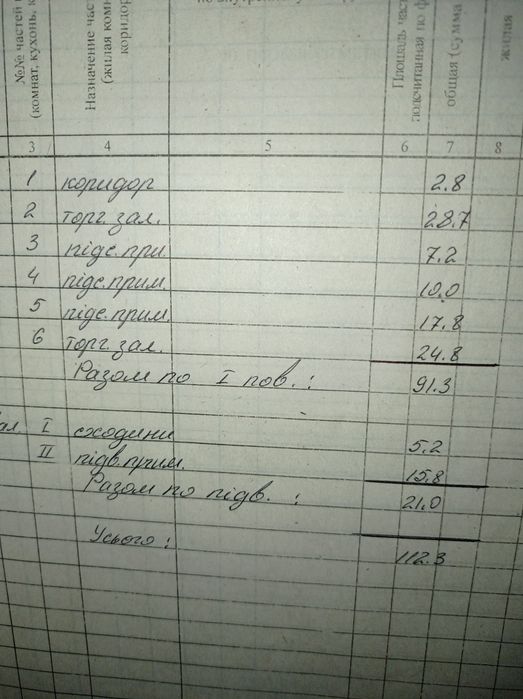 №№ частей
(комнат, кухонь,
Назначение час
(жилая комн
коридор
Площадь част
подсчитанная по ф
общая (сумма
жилая
3 4 5 6 7 8
1 коридор 2.8
2 торг. зал. 28.7
3 підс. при 7.2
4 підс. прим. 10.0
5 підс. прим. 17.8
6 торг. зал. 24.8
Разом по I пов. : 91.3
I сходини 5.2
II підв. прим. 15.8
Разом по підв. : 21.0
Усього : 112.3